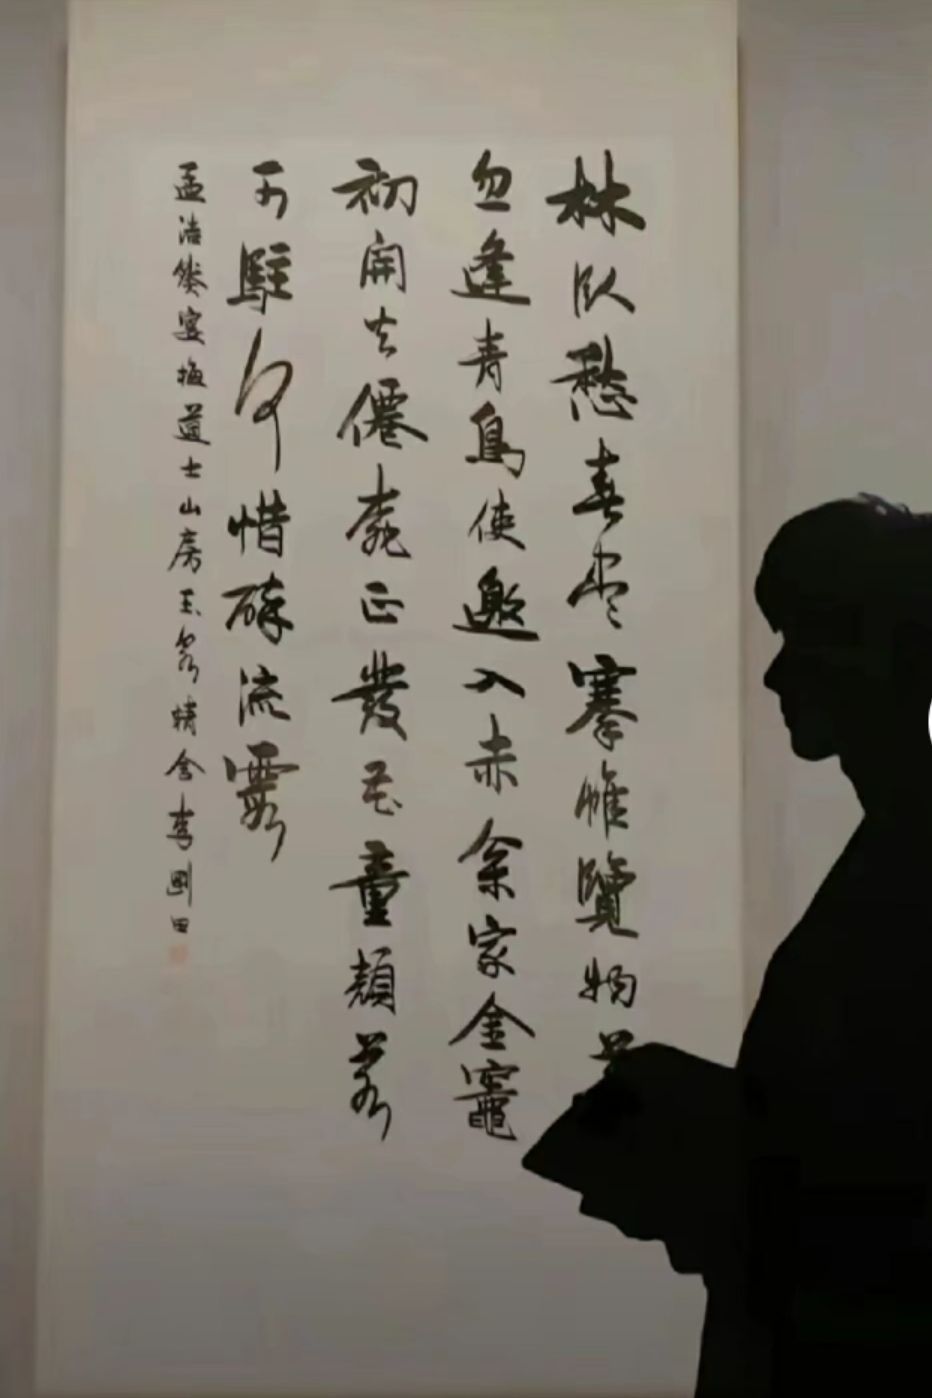 林臥愁春尽搴帷覽物
忽逢青鳥使邀入赤枀家金竈
初開火僊桃正發花童顏若
可駐何惜醉流霞
孟浩然宴梅道士山房玉泉精舍李剛田